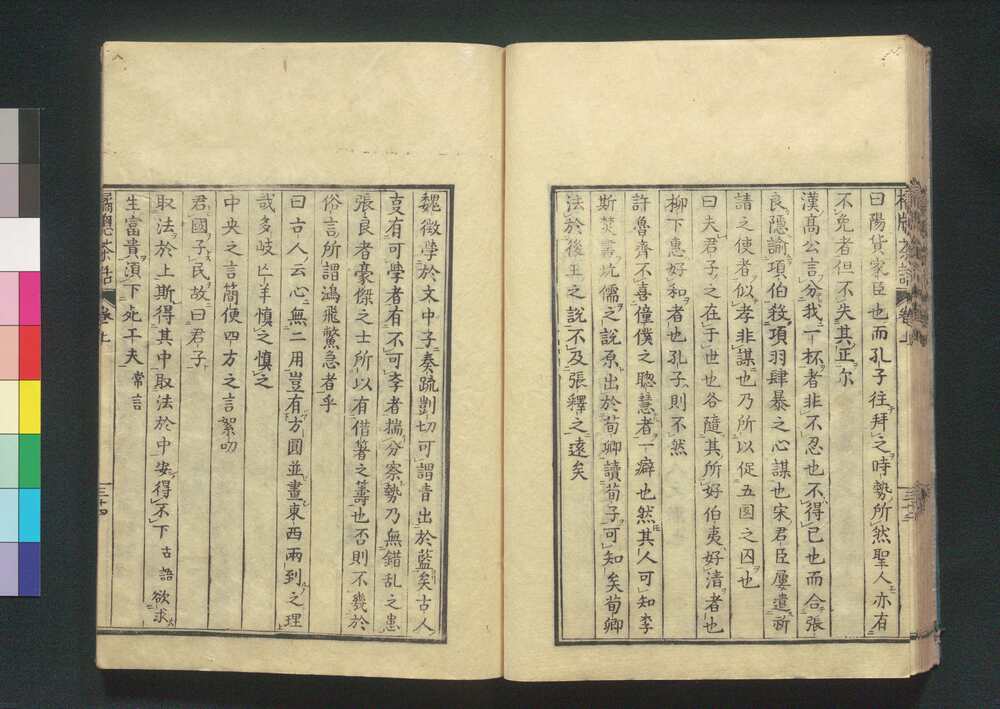 曰陽貨家臣也而孔子往拜之時勢所然聖人亦有
不免者但不失其正尔
漢高公言分我一杯者非不忍也不得已也而合張
良隱諭項伯殺項羽肆暴之心謀也宋君臣屢遣祈
請之使者似孝非謀也乃所以促五国之囚也
曰夫君子之在于世也各隨其所好伯夷好清者也
柳下惠好和者也孔子則不然
許魯齊不喜僮僕之聰慧者一癖也然其人可知李
斯焚書坑儒之說原出於荀卿讀荀子可知矣荀卿
法於後王之說不及張釋之遠矣
橘牕茶話 卷上 三十四
魏徵學於文中子奏疏剴切可謂青出於藍矣古人
叓有可學者有不可李者揣分察勢乃無錯乱之患
張良者豪傑之士所以有借箸之籌也否則不幾於
俗言所謂鴻飛鱉急者乎
曰古人云心無二用豈有方圓並畫東西兩到之理
哉多岐亡羊慎之慎之
中央之言簡便四方之言絮叨
君國子民故曰君子
取法於上斯得其中取法於中安得不下 古語 欲求
生富貴須下死工夫 常言